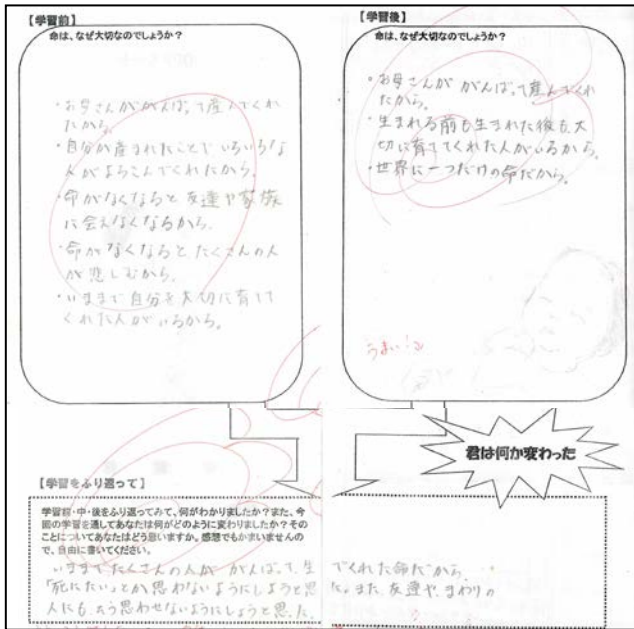 【学習前】
命は、なぜ大切なのでしょうか？
・お母さんががんばって産んでくれ
たから。
・自分が産まれたことでいろいろな
人がよろこんでくれたから。
・命がなくなると友達や家族
に会えなくなるから。
・命がなくなるとたくさんの人
が悲しむから。
・いままで自分を大切に育てて
くれた人がいるから。
【学習後】
命は、なぜ大切なのでしょうか？
・お母さんが がんばって産んでくれ
たから。
・生まれる前も生まれた後も、大
切に育ててくれた人がいるから。
・世界に一つだけの命だから。
うまい！
君は何か変わった
【学習をふり返って】
学習前・中・後をふり返ってみて、何がわかりましたか？また、今
回の学習を通してあなたは何がどのように変わりましたか？その
ことについてあなたはどう思いますか。感想でもかまいませんの
で、自由に書いてください。
いままでたくさんの人が がんばって、生
んでくれた命だから
「死にたい」とか思わないようにしようと思
った。また、友達や、まわりの
人にも、そう思わせないようにしようと思った。